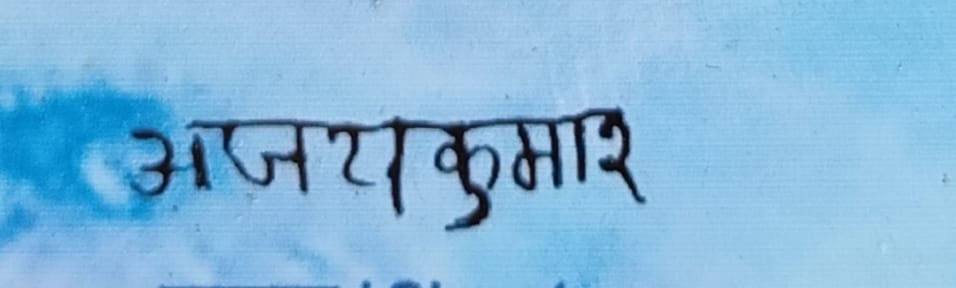 अजयकुमार